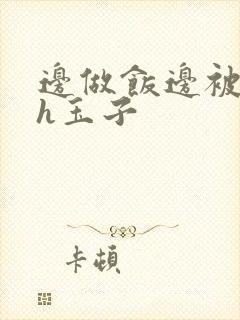 邊做飯邊被
h玉子
卡頓